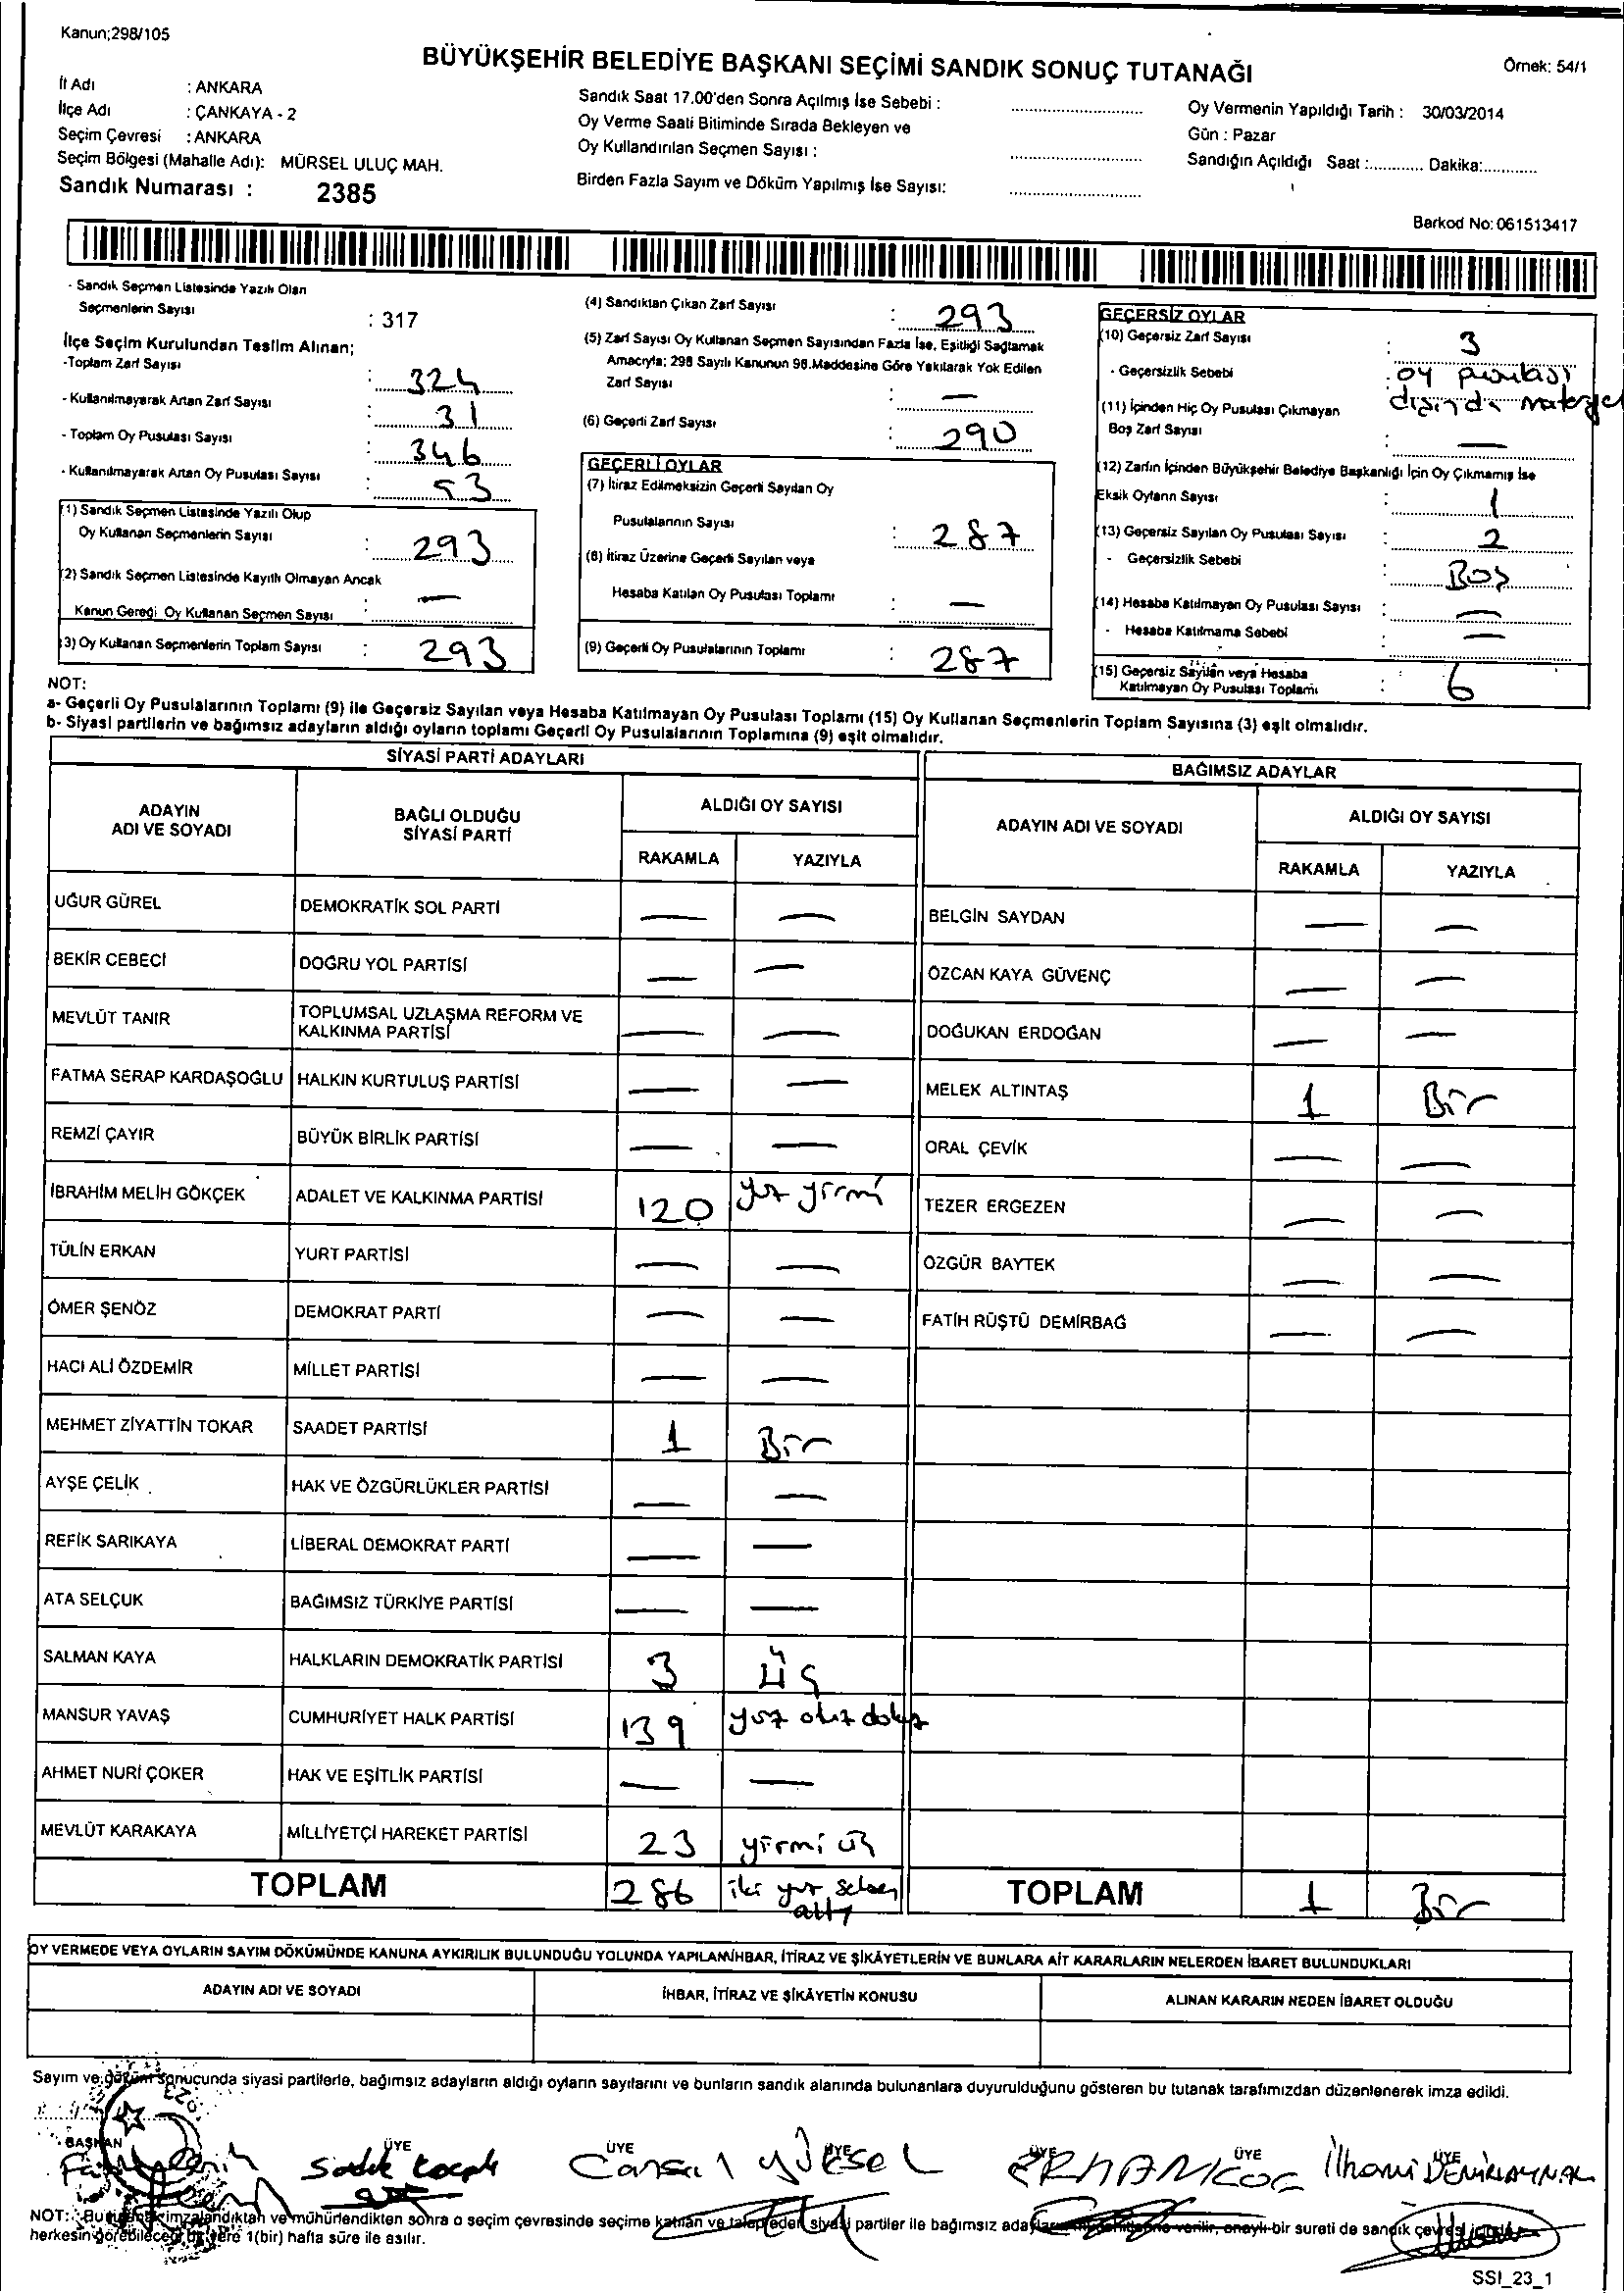 Kanun;298/105
BÜYÜKŞEHİR BELEDİYE BAŞKANI SEÇİMİ SANDIK SONUÇ TUTANAĞI
Örnek: 54/1
İl Adı : ANKARA
İlçe Adı : ÇANKAYA - 2
Seçim Çevresi : ANKARA
Seçim Bölgesi (Mahalle Adı): MÜRSEL ULUÇ MAH.
Sandık Numarası : 2385
Sandık Saat 17.00'den Sonra Açılmış İse Sebebi :
Oy Verme Saati Bitiminde Sırada Bekleyen ve
Oy Kullandırılan Seçmen Sayısı :
Birden Fazla Sayım ve Döküm Yapılmış İse Sayısı:
Oy Vermenin Yapıldığı Tarih : 30/03/2014
Gün : Pazar
Sandığın Açıldığı Saat :............ Dakika:............
Barkod No: 061513417
- Sandık Seçmen Listesinde Yazılı Olan
Seçmenlerin Sayısı : 317
İlçe Seçim Kurulundan Teslim Alınan;
-Toplam Zarf Sayısı : 324
- Kullanılmayarak Artan Zarf Sayısı : 31
- Toplam Oy Pusulası Sayısı : 346
- Kullanılmayarak Artan Oy Pusulası Sayısı : 53
(1) Sandık Seçmen Listesinde Yazılı Olup
Oy Kullanan Seçmenlerin Sayısı : 293
(2) Sandık Seçmen Listesinde Kayıtlı Olmayan Ancak
Kanun Gereği Oy Kullanan Seçmen Sayısı : —
(3) Oy Kullanan Seçmenlerin Toplam Sayısı : 293
(4) Sandıktan Çıkan Zarf Sayısı : 293
(5) Zarf Sayısı Oy Kullanan Seçmen Sayısından Fazla İse, Eşitliği Sağlamak
Amacıyla; 298 Sayılı Kanunun 98.Maddesine Göre Yakılarak Yok Edilen
Zarf Sayısı : —
(6) Geçerli Zarf Sayısı : 290
GEÇERLİ OYLAR
(7) İtiraz Edilmeksizin Geçerli Sayılan Oy
Pusulalarının Sayısı : 287
(8) İtiraz Üzerine Geçerli Sayılan veya
Hesaba Katılan Oy Pusulası Toplamı : —
(9) Geçerli Oy Pusulalarının Toplamı : 287
GEÇERSİZ OYLAR
(10) Geçersiz Zarf Sayısı : 3
- Geçersizlik Sebebi : oy pusulası
dışında materyal
(11) İçinden Hiç Oy Pusulası Çıkmayan
Boş Zarf Sayısı : —
(12) Zarfın İçinden Büyükşehir Belediye Başkanlığı İçin Oy Çıkmamış İse
Eksik Oyların Sayısı : 1
(13) Geçersiz Sayılan Oy Pusulası Sayısı : 2
- Geçersizlik Sebebi : Boş
(14) Hesaba Katılmayan Oy Pusulası Sayısı : —
- Hesaba Katılmama Sebebi : —
(15) Geçersiz Sayılan veya Hesaba
Katılmayan Oy Pusulası Toplamı : 6
NOT:
a- Geçerli Oy Pusulalarının Toplamı (9) ile Geçersiz Sayılan veya Hesaba Katılmayan Oy Pusulası Toplamı (15) Oy Kullanan Seçmenlerin Toplam Sayısına (3) eşit olmalıdır.
b- Siyasi partilerin ve bağımsız adayların aldığı oyların toplamı Geçerli Oy Pusulalarının Toplamına (9) eşit olmalıdır.
SİYASİ PARTİ ADAYLARI
ADAYIN ADI VE SOYADI BAĞLI OLDUĞU SİYASİ PARTİ ALDIĞI OY SAYISI
RAKAMLA YAZIYLA
UĞUR GÜREL DEMOKRATİK SOL PARTİ — —
BEKİR CEBECİ DOĞRU YOL PARTİSİ — —
MEVLÜT TANIR TOPLUMSAL UZLAŞMA REFORM VE KALKINMA PARTİSİ — —
FATMA SERAP KARDAŞOĞLU HALKIN KURTULUŞ PARTİSİ — —
REMZİ ÇAYIR BÜYÜK BİRLİK PARTİSİ — —
İBRAHİM MELİH GÖKÇEK ADALET VE KALKINMA PARTİSİ 120 yüz yirmi
TÜLİN ERKAN YURT PARTİSİ — —
ÖMER ŞENÖZ DEMOKRAT PARTİ — —
HACI ALİ ÖZDEMİR MİLLET PARTİSİ — —
MEHMET ZİYATTİN TOKAR SAADET PARTİSİ 1 Bir
AYŞE ÇELİK HAK VE ÖZGÜRLÜKLER PARTİSİ — —
REFİK SARIKAYA LİBERAL DEMOKRAT PARTİ — —
ATA SELÇUK BAĞIMSIZ TÜRKİYE PARTİSİ — —
SALMAN KAYA HALKLARIN DEMOKRATİK PARTİSİ 3 Üç
MANSUR YAVAŞ CUMHURİYET HALK PARTİSİ 139 yüz otuz dokuz
AHMET NURİ ÇOKER HAK VE EŞİTLİK PARTİSİ — —
MEVLÜT KARAKAYA MİLLİYETÇİ HAREKET PARTİSİ 23 yirmi üç
TOPLAM 286 iki yüz seksen altı
BAĞIMSIZ ADAYLAR
ADAYIN ADI VE SOYADI ALDIĞI OY SAYISI
RAKAMLA YAZIYLA
BELGİN SAYDAN — —
ÖZCAN KAYA GÜVENÇ — —
DOĞUKAN ERDOĞAN — —
MELEK ALTINTAŞ 1 Bir
ORAL ÇEVİK — —
TEZER ERGEZEN — —
ÖZGÜR BAYTEK — —
FATİH RÜŞTÜ DEMİRBAĞ — —
TOPLAM 1 Bir
OY VERMEDE VEYA OYLARIN SAYIM DÖKÜMÜNDE KANUNA AYKIRILIK BULUNDUĞU YOLUNDA YAPILAN İHBAR, İTİRAZ VE ŞİKÂYETLERİN VE BUNLARA AİT KARARLARIN NELERDEN İBARET BULUNDUKLARI
ADAYIN ADI VE SOYADI İHBAR, İTİRAZ VE ŞİKÂYETİN KONUSU ALINAN KARARIN NEDEN İBARET OLDUĞU
Sayım ve döküm sonucunda siyasi partilerle, bağımsız adayların aldığı oyların sayılarını ve bunların sandık alanında bulunanlara duyurulduğunu gösteren bu tutanak tarafımızdan düzenlenerek imza edildi.
BAŞKAN ÜYE ÜYE ÜYE ÜYE ÜYE ÜYE
Sadık Cansal YÜKSEL ERHAN KOÇ İlhami
NOT: Bu tutanak imzalandıktan ve mühürlendikten sonra o seçim çevresinde seçime katılan ve talep eden siyasi partiler ile bağımsız aday verilir, onaylı bir sureti de sandık çevresi içinde
herkesin görebileceği bir yere 1(bir) hafta süre ile asılır.
SSI_23_1